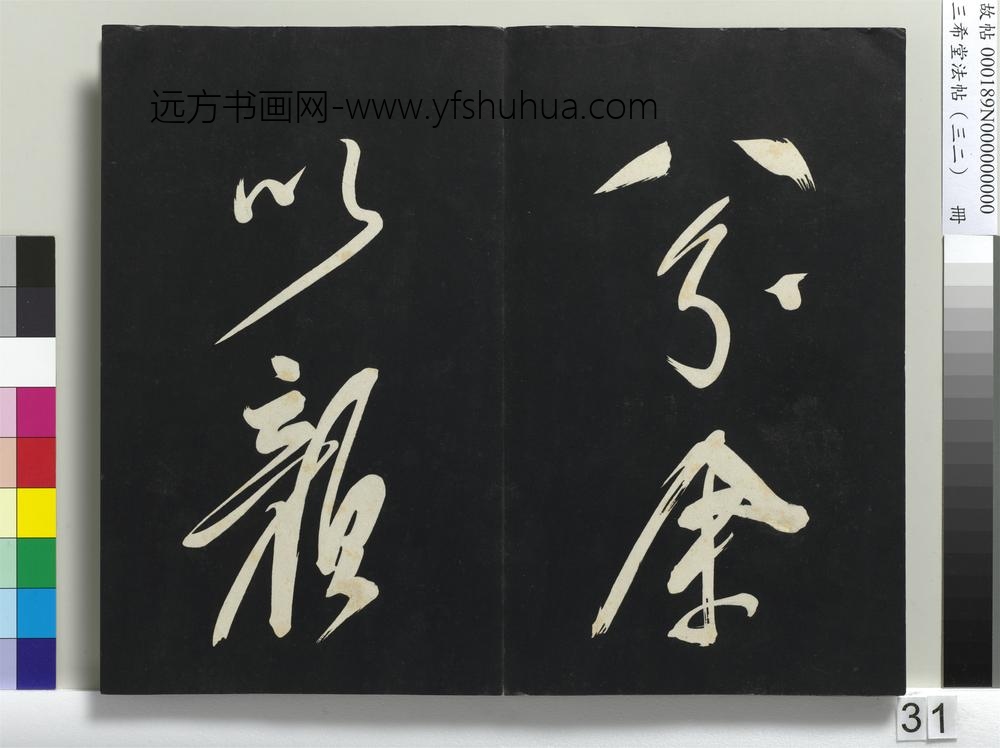 远方书画网-www.yfshuhua.com
余
以
故帖 000189N000000000
三希堂法帖（三二） 冊
31